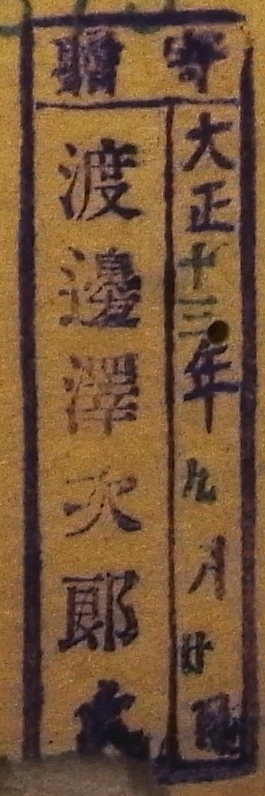 寄贈
大正十三年九月廿日
渡邊澤次郎